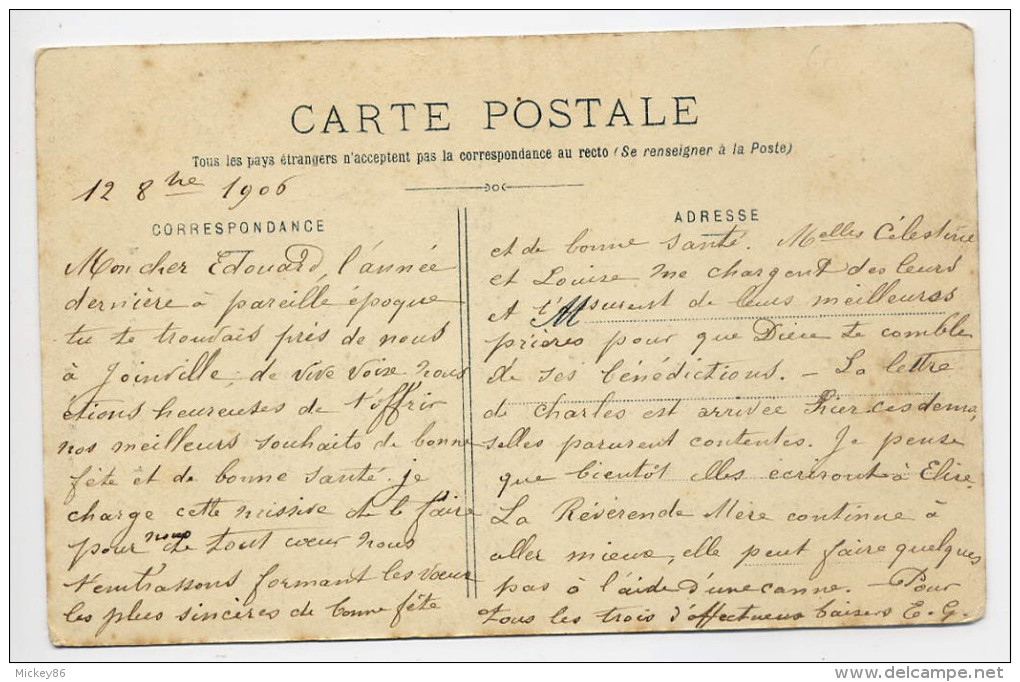 CARTE POSTALE
Tous les pays étrangers n'acceptent pas la correspondance au recto (Se renseigner à la Poste)
12 8bre 1906
CORRESPONDANCE
Mon cher Edouard, l'année
dernière à pareille époque
tu te trouvais près de nous
à Joinville, de vive voix nous
étions heureuses de t'offrir
nos meilleurs souhaits de bonne
fête et de bonne santé. je
charge cette missive de le faire
pour nous de tout cœur nous
t'embrassons formant les vœux
les plus sincères de bonne fête
ADRESSE
et de bonne santé. Melles Célestine
et Louise me chargent des leurs
et t'assurent de leurs meilleures
prières pour que Dieu te comble
de ses bénédictions. - La lettre
de Charles est arrivée hier ces demoi
selles parurent contentes. Je pense
que bientôt elles écriront à Elise.
La Révérende Mère continue à
aller mieux, elle peut faire quelques
pas à l'aide d'une canne. - Pour
tous les trois d'affectueux baisers E. G.
Mickey86
www.delcampe.net